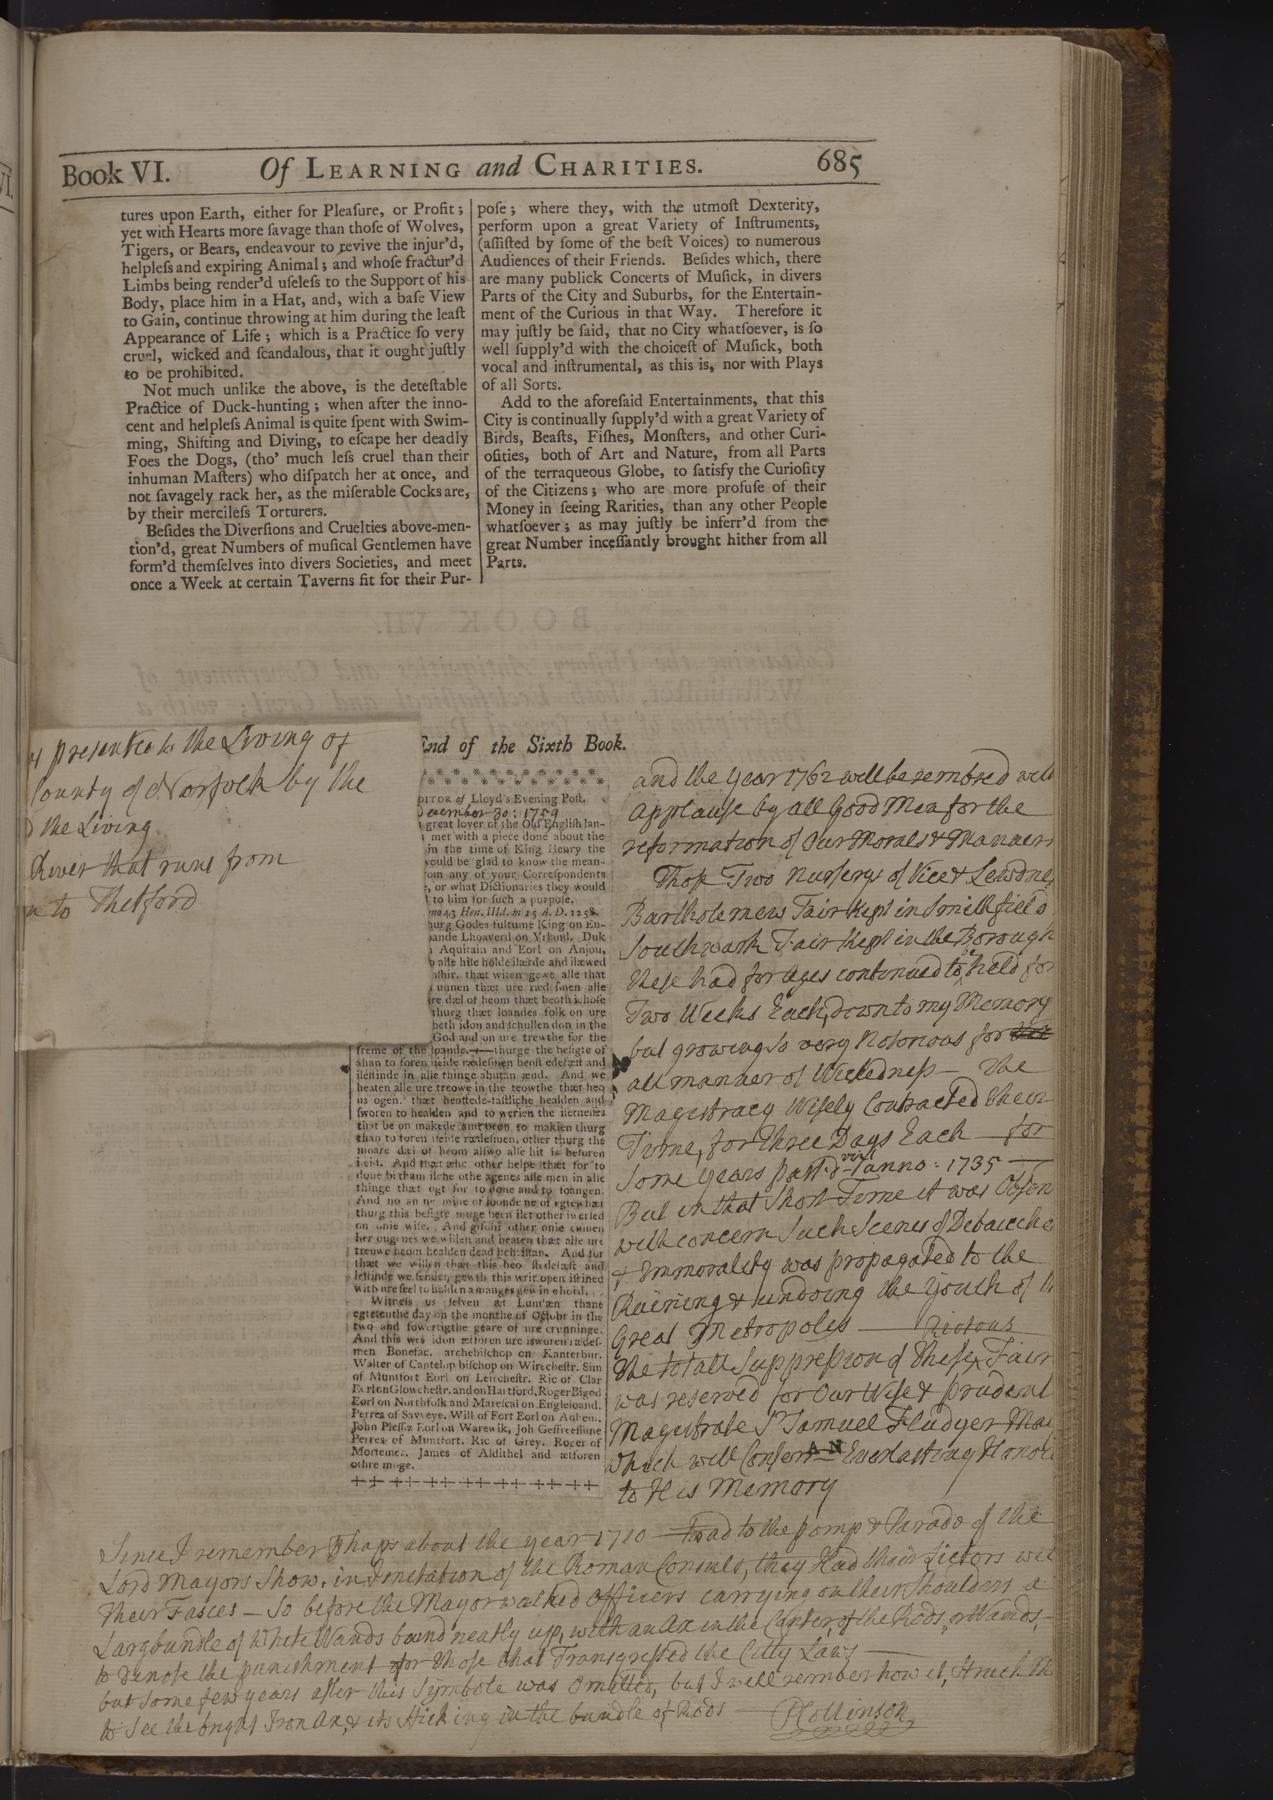 Book VI. Of LEARNING and CHARITIES. 685
tures upon Earth, either for Pleaſure, or Profit;
yet with Hearts more ſavage than thoſe of Wolves,
Tigers, or Bears, endeavour to revive the injur'd,
helpleſs and expiring Animal; and whoſe fractur'd
Limbs being render'd uſeleſs to the Support of his
Body, place him in a Hat, and, with a baſe View
to Gain, continue throwing at him during the leaſt
Appearance of Life; which is a Practice ſo very
cruel, wicked and ſcandalous, that it ought juſtly
to be prohibited.
Not much unlike the above, is the deteſtable
Practice of Duck-hunting; when after the inno-
cent and helpleſs Animal is quite ſpent with Swim-
ming, Shifting and Diving, to eſcape her deadly
Foes the Dogs, (tho' much leſs cruel than their
inhuman Maſters) who diſpatch her at once, and
not ſavagely rack her, as the miſerable Cocks are,
by their mercileſs Torturers.
Beſides the Diverſions and Cruelties above-men-
tion'd, great Numbers of muſical Gentlemen have
form'd themſelves into divers Societies, and meet
once a Week at certain Taverns fit for their Pur-
poſe; where they, with the utmoſt Dexterity,
perform upon a great Variety of Inſtruments,
(aſſiſted by ſome of the beſt Voices) to numerous
Audiences of their Friends. Beſides which, there
are many publick Concerts of Muſick, in divers
Parts of the City and Suburbs, for the Entertain-
ment of the Curious in that Way. Therefore it
may juſtly be ſaid, that no City whatſoever, is ſo
well ſupply'd with the choiceſt of Muſick, both
vocal and inſtrumental, as this is, nor with Plays
of all Sorts.
Add to the aforeſaid Entertainments, that this
City is continually ſupply'd with a great Variety of
Birds, Beaſts, Fiſhes, Monſters, and other Curi-
oſities, both of Art and Nature, from all Parts
of the terraqueous Globe, to ſatisfy the Curioſity
of the Citizens; who are more profuſe of their
Money in ſeeing Rarities, than any other People
whatſoever; as may juſtly be inferr'd from the
great Number inceſſantly brought hither from all
Parts.
End of the Sixth Book.
presented to the Living of
County of Norfolk by the
the Living
River that runs from
to Thetford
of Lloyd's Evening Poſt.
December 30: 1759
great lover of the Old Engliſh lan-
met with a piece done about the
in the time of King Henry the
would be glad to know the mean-
from any of your Correſpondents
, or what Dictionaries they would
to him for ſuch a purpoſe.
43 Hen. IIId. 15 A. D. 1258.
Godes fultume King on En-
Lhoaverd on Yrland. Duk
Aquitain and Eorl on Anjou,
alle hiſe holde ilærde and ilæwed
thæt witen gewe alle that
unnen thæt ure ræd ſmen alle
dæl of heom thæt beoth
thurg thæt loandes folk on ure
beth idon and ſchullen don in the
God and on ure trewthe for the
freme of the loande. thurge the beſigte of
than to foren iſeide rædeſmen beoſt edefæſt and
ileſtinde in alle thinge abutan ænd. And we
heaten alle ure treowe in the teowthe thæt heo
us ogen. thæt healden and
ſworen to healden and to werien the
that be on makede and beon to makien thurg
than to foren iſeide rædeſmen, other thurg the
moare dæl of heom alſwo alſe hit is beforen
iſeid. And thæt æhc other helpe thæt for to
done bitham ilche othe agenes alle men in alle
thinge thæt ogt for to done and to foangen.
And no
thurg this beſigte muge been ilet other iwerſed
on onie wiſe. And other onie cumen
her ougenes we willen and heaten thæt alle ure
treowe heom healden dead And for
thæt we willen thæt this beo ſtedefæſt and
leſtinde we ſenden gewth this writ open iſeined
with ure ſeel to halden amanges gew in ehord.
Witneſs us ſelven æt Lundæn thane
egtetenthe day on the monthe of Octobr in the
two and fowertigthe geare of ure crunninge.
And this wes idon ætforen ure iſworen rædeſ-
men Bonefac. archebiſchop on Kanterbur.
Walter of Cantelop biſchop on Wirecheſtr. Sim
of Muntfort Eorl on Leircheſtr. Ric of Clar
Eorl on Glowcheſtr. and on Hartford. Roger Bigod
Eorl on Northfolk and Mareſcal on Engleloand.
Perres of Sauveye. Will of Fort Eorl on Aubem.
John Pleſſiz Eorl on Warewik, Joh Geffreeſſune
Perres of Muntfort. Ric of Grey. Roger of
Mortemer. James of Aldithel and ætforen
othre moge.
and the year 1762 will be rembred with
applause by all Good Men for the
reformation of Our Morals & Manners
Those Two Nurserys of Vice & Lewdnes
Bartholemews Fair kept in Smithfield
Southwark Fair Kept in the Borough
these had for ages continued to be held for
Two Weeks Each, down to my Memory
but growing so very Notorious for
all manner of Wickedness — The
Magistracy Wisely Contracted their
Time, for three Days Each — for
some years past — anno: 1735 —
But in that Short Time it was Obser
with concern Such Scenes of Debauche
& Immorality was propagated to the
Ruining & undoing the Youth of
Great Metropoles — Riotous
the totall Suppression of these Fair
was reserved for Our Wise & prudent
Magistrate Sr Samuel Fludyer
which will Confer AN Everlasting Honour
to His Memory
Since I remember about the year 1710 — to the pomp & Parade of the
Lord Mayors Show, in Imitation of the Roman Consuls, they Had their Lictors with
Their Fasces — So before the Mayor walked officers carrying on their Shoulders a
Larg bundle of White Wands bound neatly up, with an Ax in the Center, of the Rods or Wands,
to Denote the punishment for those that Transgressed the Citty Laws —
but Some few years after this Symbole was Omitted, but I well remember how it Struck
to See the bright Iron Ax & its Sticking in the bundle of Rods — PCollinson